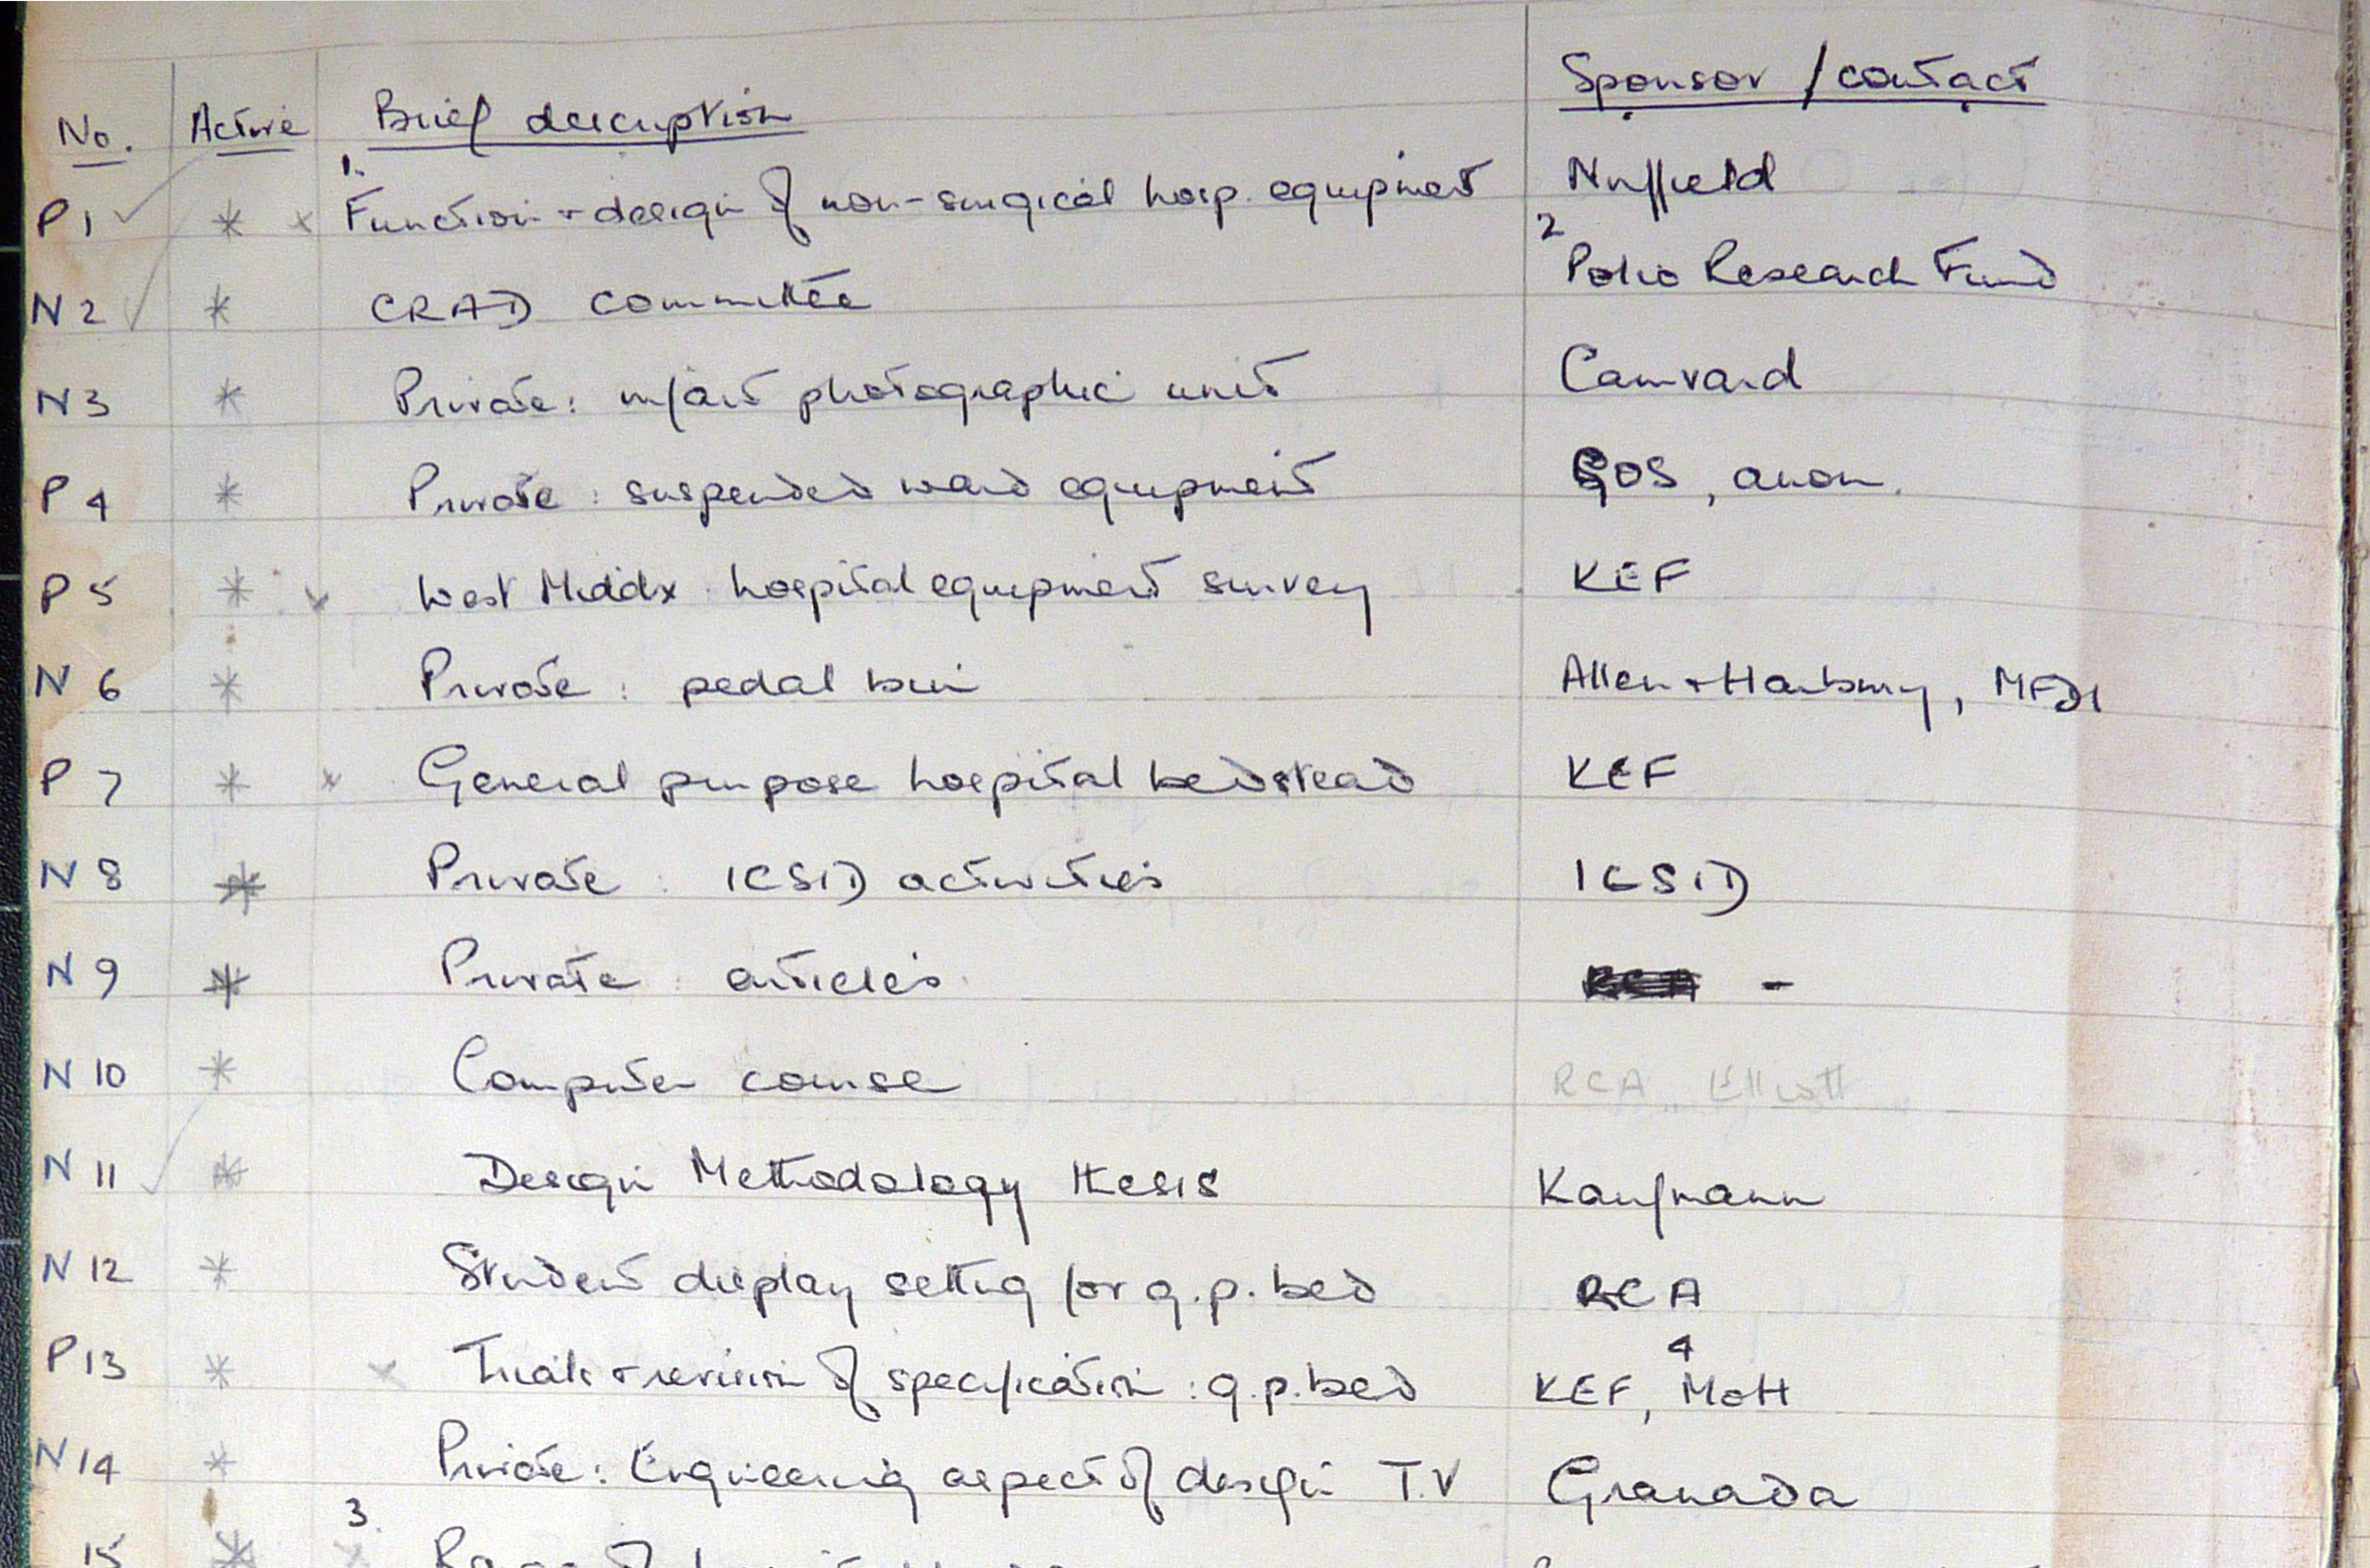 No. Active Brief description Sponsor / contact
P 1 ✓ * x 1. Function + design of non-surgical hosp. equipment Nuffield
N 2 ✓ * CRAD committee 2 Polio Research Fund
N 3 * Private: m/art photographic unit Camvard
P 4 * Private: suspended ward equipment GOS, anon.
P 5 * x West Middx hospital equipment survey KEF
N 6 * Private: pedal bin Allen + Hanbury, MFDI
P 7 * x General purpose hospital bedstead KEF
N 8 * Private: ICSID activities ICSID
N 9 * Private: articles -
N 10 * Computer course RCA Elliott
N 11 ✓ * Design Methodology thesis Kaufmann
N 12 * Student display setting for g.p. bed RCA
P 13 * x Trials + revision of specification: g.p. bed KEF, 4 MoH
N 14 * Private: Engineering aspect of design T.V Granada
15 * x 3.